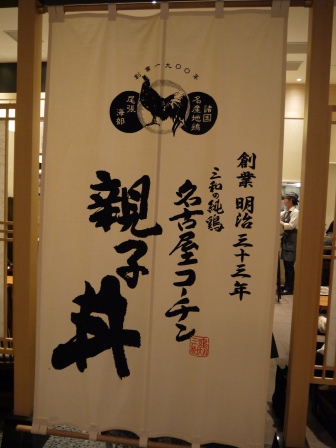 創業一九〇〇年
諸国
名産地鶏
尾張
海部
創業 明治三十三年
三和の純鶏
名古屋コーチン
親子丼